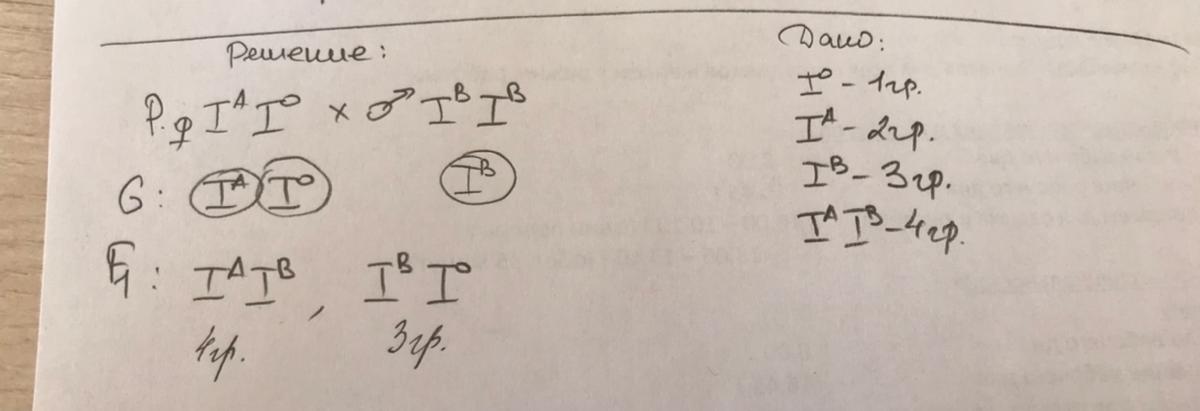 Решение:
P. ♀ IᴬI⁰ × ♂ IᴮIᴮ
G: Iᴬ I⁰ Iᴮ
F₁: IᴬIᴮ, IᴮI⁰
4гр. 3гр.
Дано:
I⁰ - 1гр.
Iᴬ - 2гр.
Iᴮ - 3гр.
IᴬIᴮ - 4гр.